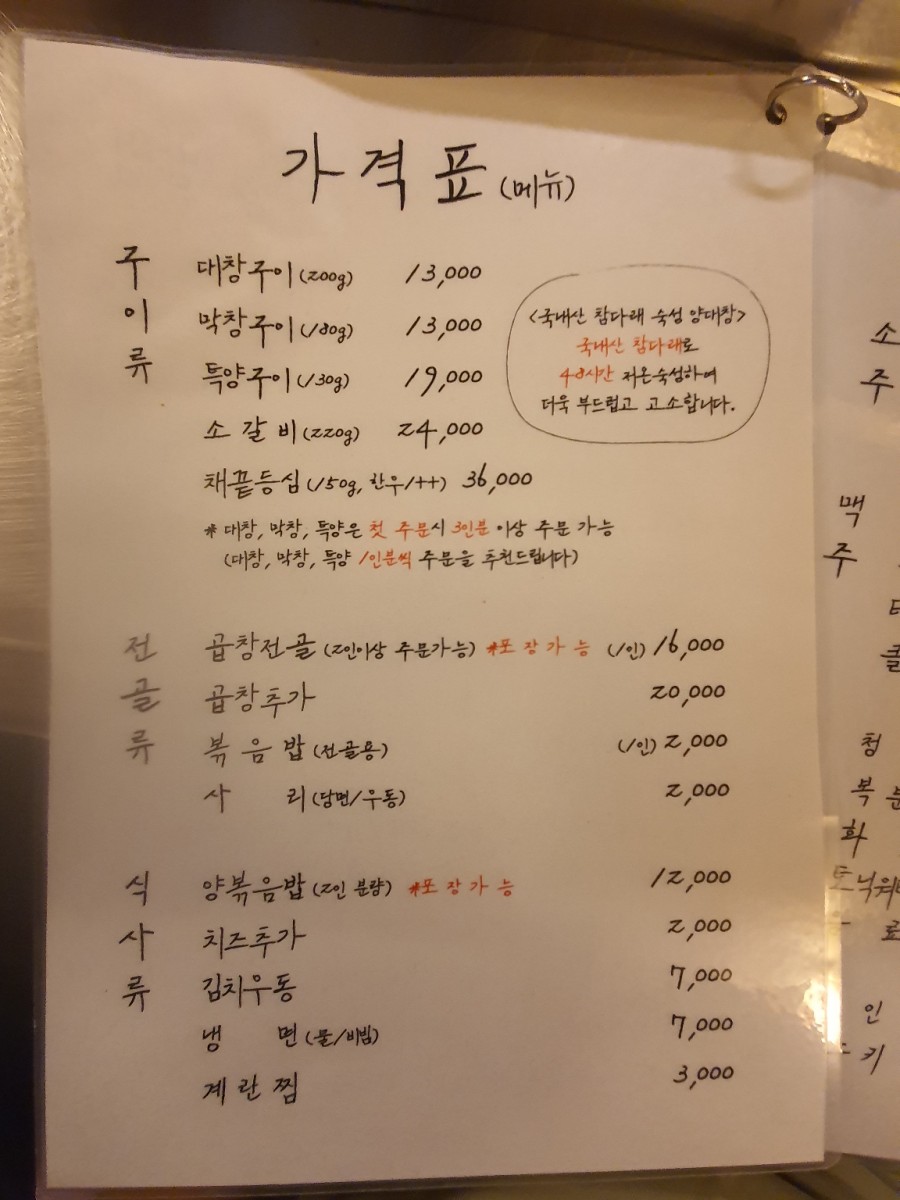 가격표 (메뉴)
구이류
대창구이 (200g) 13,000
막창구이 (180g) 13,000
특양구이 (130g) 19,000
소갈비 (220g) 24,000
채끝등심 (150g, 한우1++) 36,000
<국내산 참다래 숙성 양대창>
국내산 참다래로
48시간 저온숙성하여
더욱 부드럽고 고소합니다.
* 대창, 막창, 특양은 첫 주문시 3인분 이상 주문 가능
(대창, 막창, 특양 1인분씩 주문을 추천드립니다)
전골류
곱창전골 (2인이상 주문가능) *포장가능 (1인) 16,000
곱창추가 20,000
볶음밥 (전골용) (1인) 2,000
사리 (당면/우동) 2,000
식사류
양볶음밥 (2인 분량) *포장가능 12,000
치즈추가 2,000
김치우동 7,000
냉면 (물/비빔) 7,000
계란찜 3,000
소
주
맥
주
청
복분
화
토닉워
료
인
키